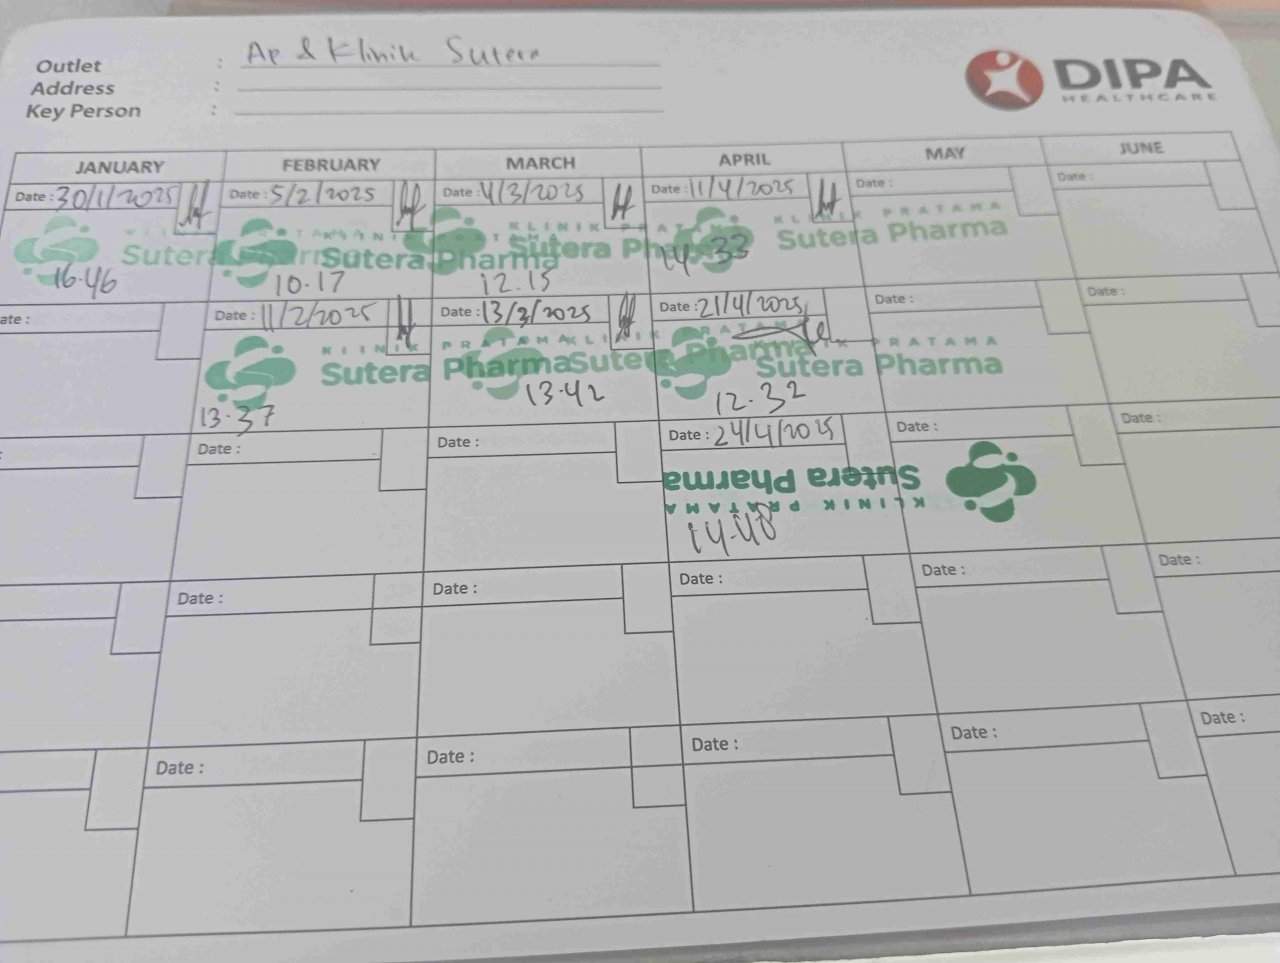 Outlet : Ap & Klinik Sutera
Address :
Key Person :
DIPA
HEALTHCARE
JANUARY FEBRUARY MARCH APRIL MAY JUNE
Date : 30/1/2025 Date : 5/2/2025 Date : 4/3/2025 Date : 11/4/2025 Date : Date :
KLINIK PRATAMA
Sutera Pharma Sutera Pharma Sutera Pharma
16.46 10.17 12.15 14.33
ate : Date : 11/2/2025 Date : 13/3/2025 Date : 21/4/2025 Date : Date :
KLINIK PRATAMA KLINIK PRATAMA PRATAMA
Sutera Pharma Sutera Pharma Sutera Pharma
13.37 13.42 12.32
: Date : Date : Date : 24/4/2025 Date : Date :
Sutera Pharma
KLINIK PRATAMA
14.48
Date : Date : Date : Date : Date :
Date : Date : Date : Date : Date :